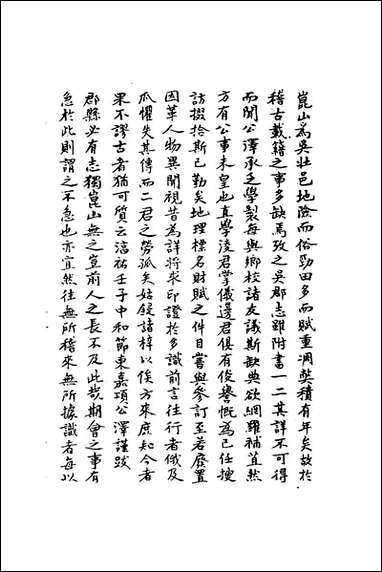 崑山爲吳壯邑地險而俗勁田多而賦重凋弊積有年矣故於
稽古載籍之事多缺焉攷之吳郡志雖附書一二其詳不可得
而聞公澤承乏學製每與鄉校諸友議斯缺典欲網羅補苴然
方有公事未皇也直學淩君掌儀邊君俱有俊譽慨爲己任搜
訪掇拾斯已勤矣地理標名財賦之件目嘗與參訂至若廢置
因革人物異聞視昔爲詳將求印證於多識前言往行者俄及
瓜懼失其傳而二君之勞孤矣姑鋟諸梓以俟方來庶知今者
果不謬古者猶可質云淳祐壬子中和節東嘉項公澤謹跋
郡縣必有志獨崑山無之豈前人之長不及此哉期會之事有
急於此則謂之不急也亦宜然往無所稽來無所據識者每以